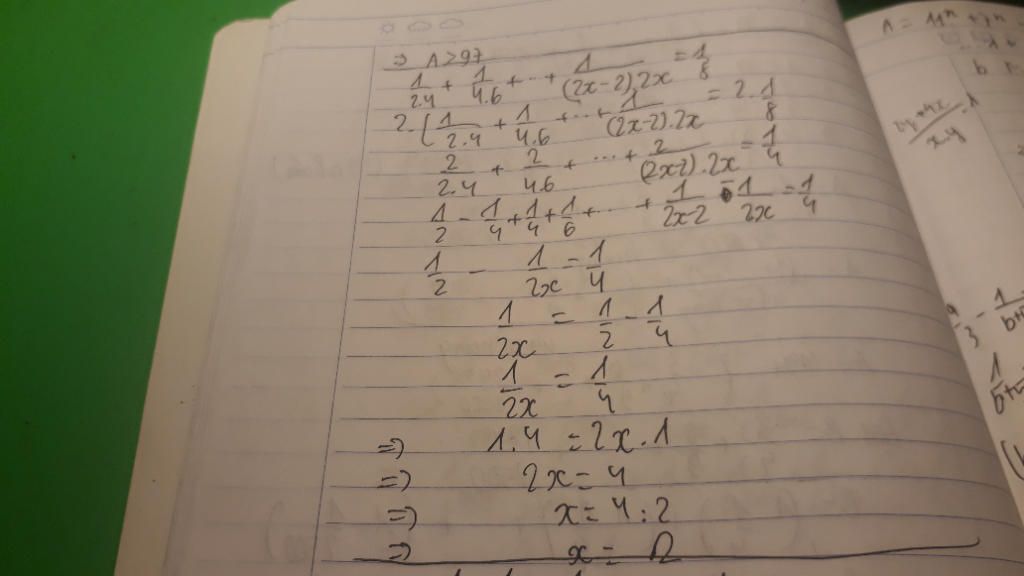 ⇒ A > 97
1/2.4 + 1/4.6 + ... + 1/(2x-2).2x = 1/8
2.(1/2.4 + 1/4.6 + ... + 1/(2x-2).2x = 2.1/8
2/2.4 + 2/4.6 + ... + 2/(2x-2).2x = 1/4
1/2 - 1/4 + 1/4 + 1/6 + ... + 1/2x-2 - 1/2x = 1/4
1/2 - 1/2x = 1/4
1/2x = 1/2 - 1/4
1/2x = 1/4
⇒ 1.4 = 2x.1
⇒ 2x = 4
⇒ x = 4:2
⇒ x = 2
A = 11ⁿ + 7ⁿ -